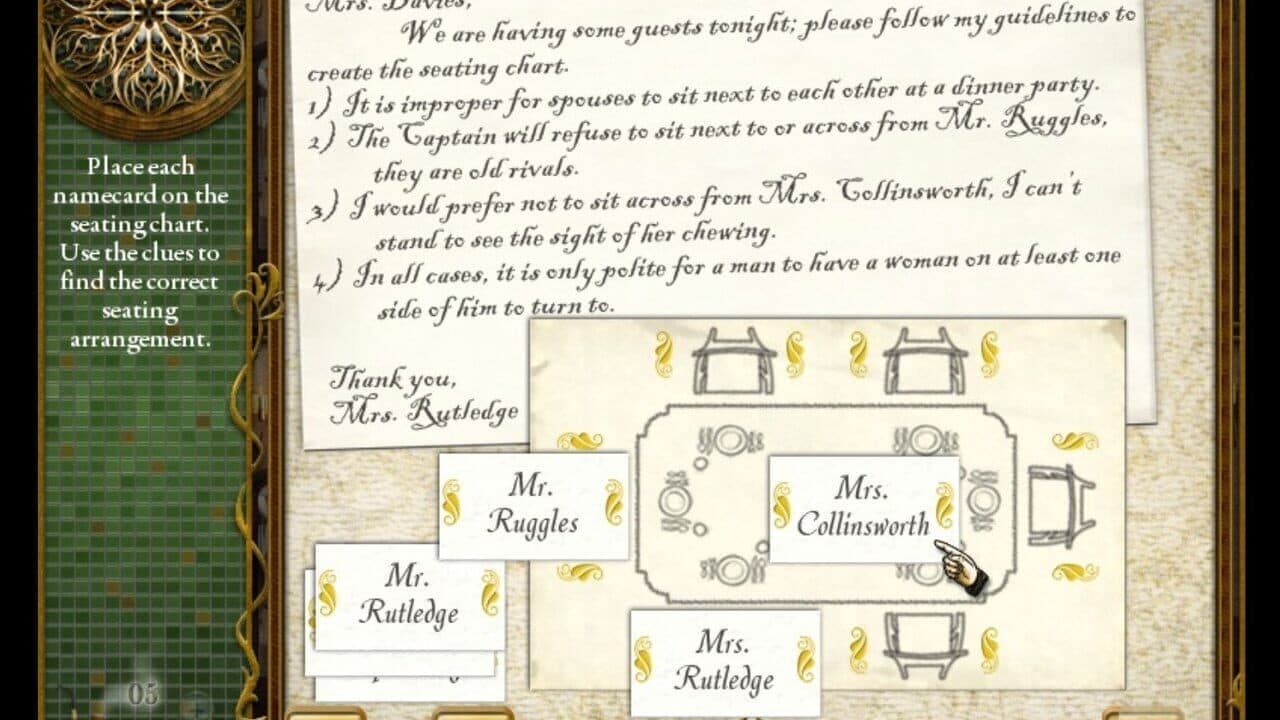 Mrs. Davies,
We are having some guests tonight; please follow my guidelines to
create the seating chart.
1) It is improper for spouses to sit next to each other at a dinner party.
2) The Captain will refuse to sit next to or across from Mr. Ruggles,
they are old rivals.
3) I would prefer not to sit across from Mrs. Collinsworth, I can't
stand to see the sight of her chewing.
4) In all cases, it is only polite for a man to have a woman on at least one
side of him to turn to.
Thank you,
Mrs. Rutledge
Place each
namecard on the
seating chart.
Use the clues to
find the correct
seating
arrangement.
Mr.
Ruggles
Mrs.
Collinsworth
Mr.
Rutledge
Mrs.
Rutledge
05